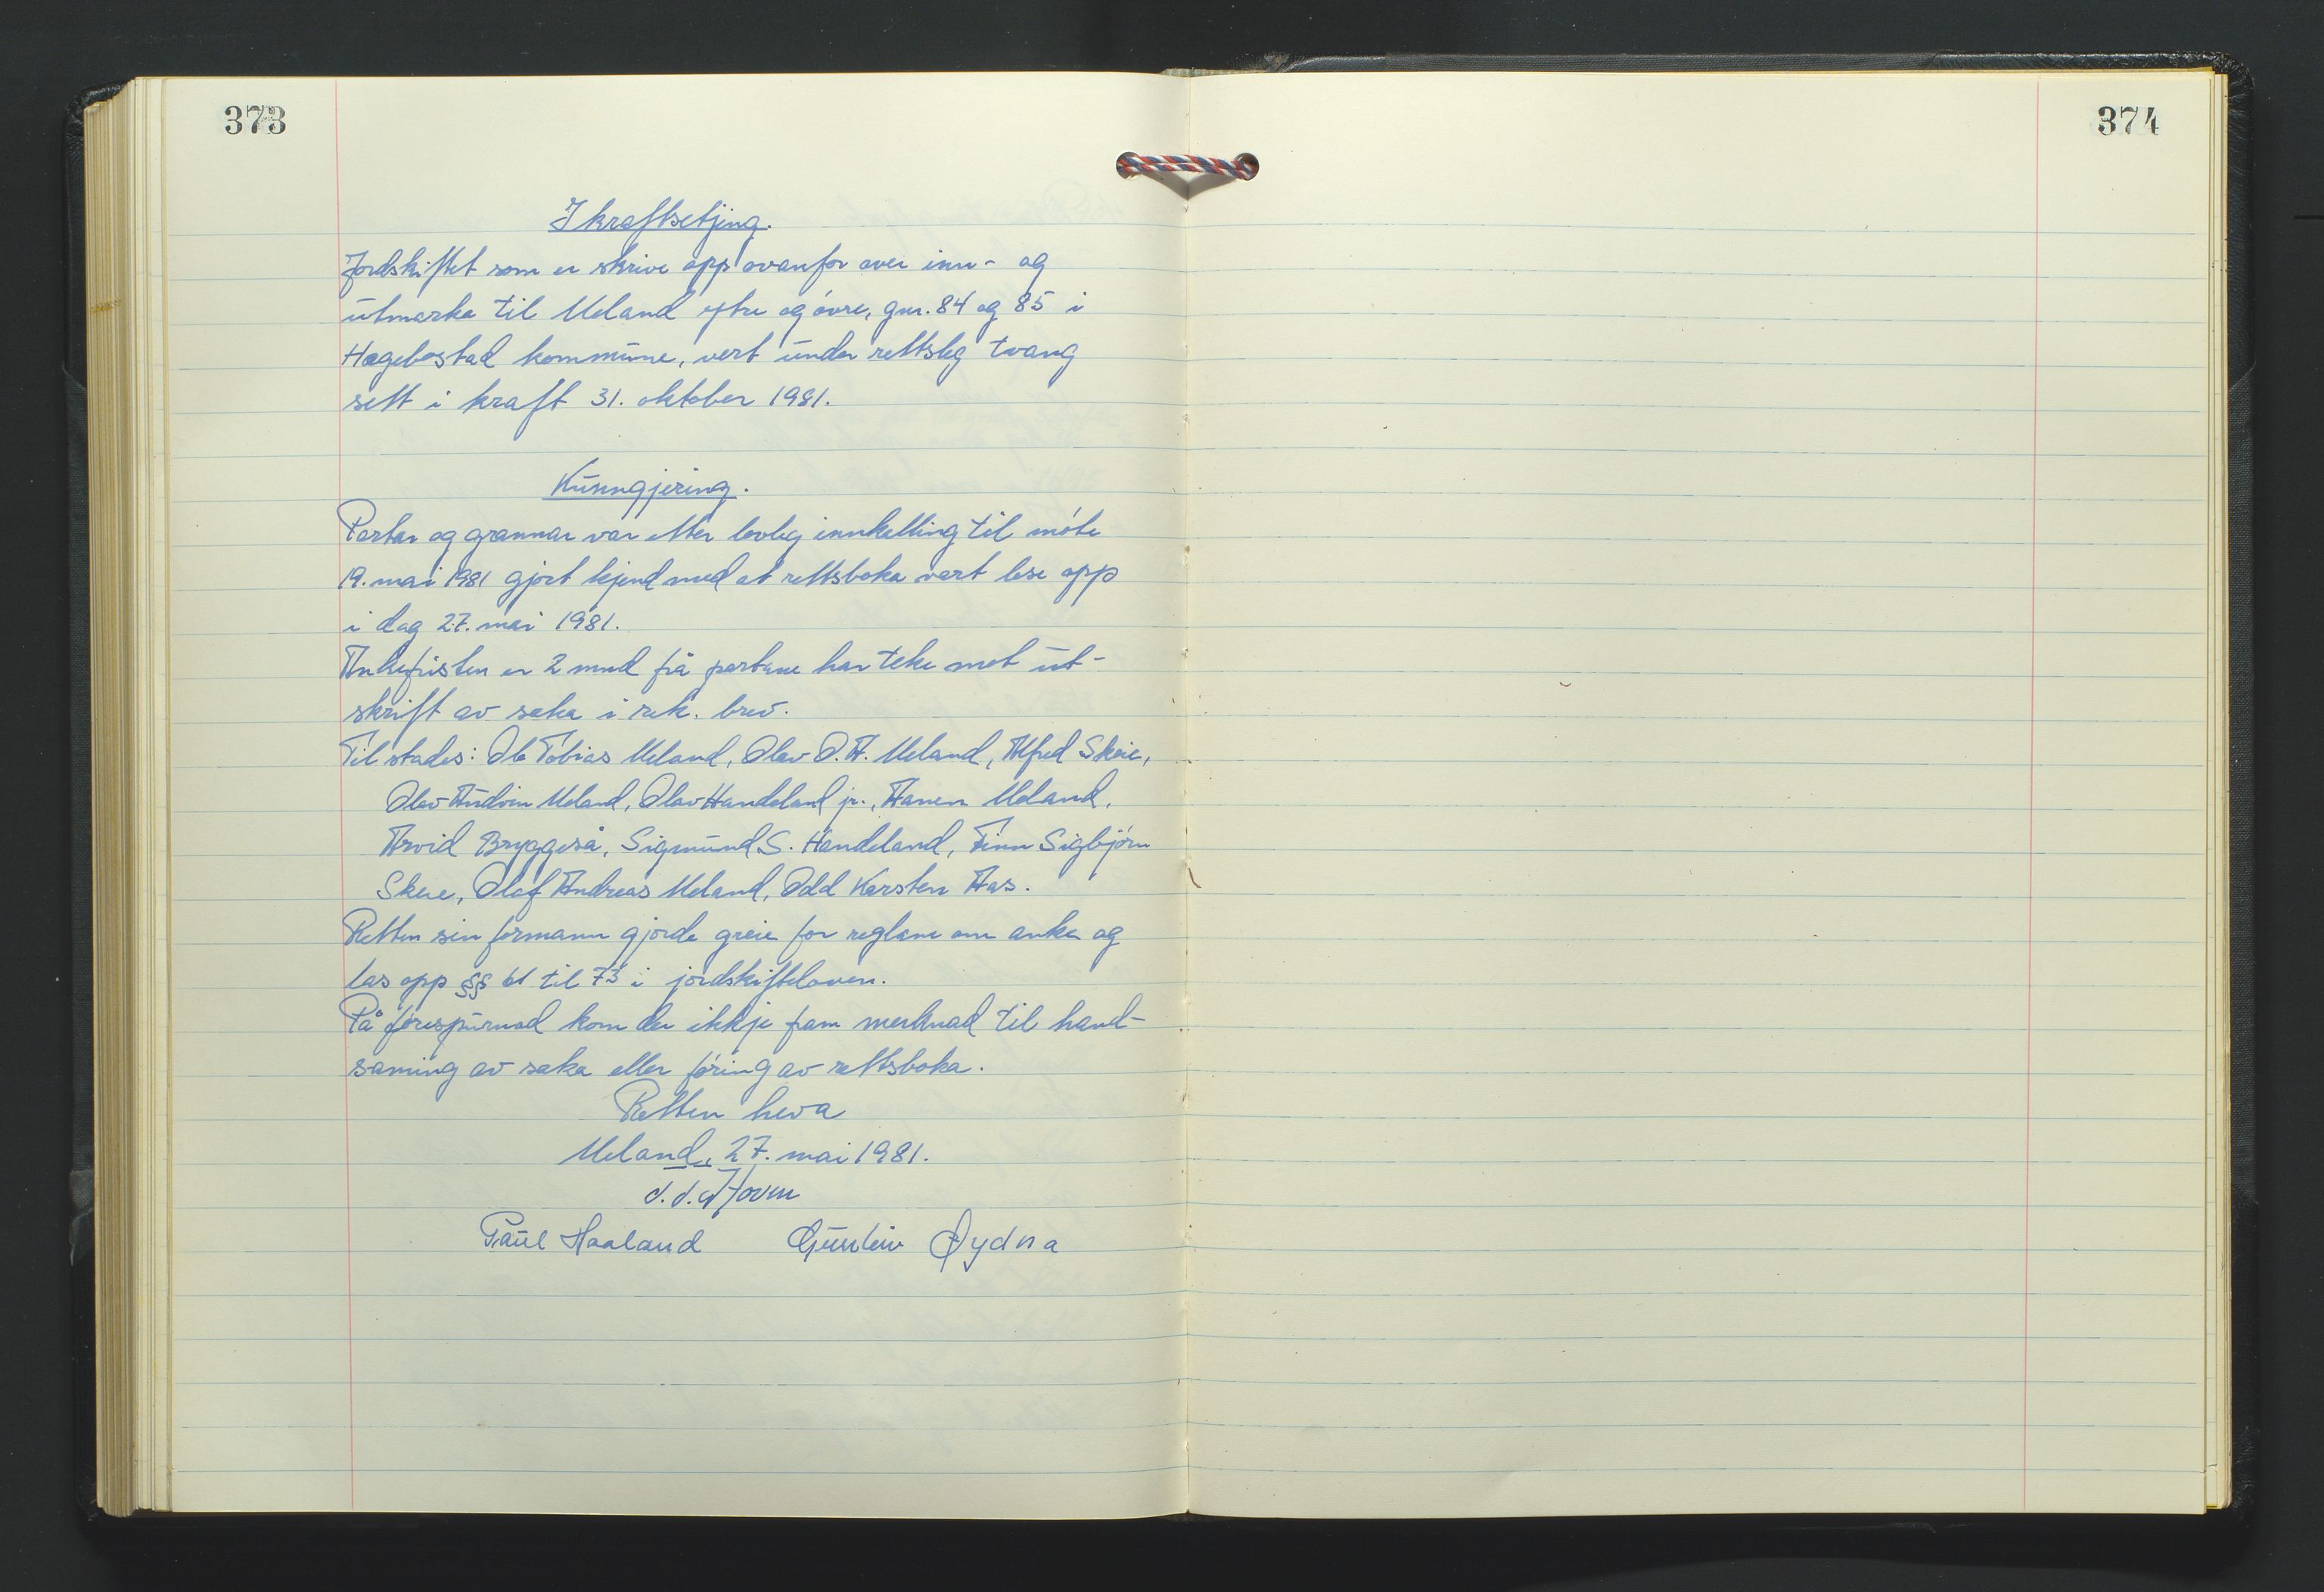 373
374
Ikraftsetjing.
Jordskiftet som er skrive opp ovanfor over inn- og
utmarka til Meland ytre og øvre, gnr. 84 og 85 i
Hægebostad kommune, vert under rettsleg tvang
sett i kraft 31. oktober 1981.
Kunngjering.
Partar og grannar var etter lovleg innkalling til møte
19. mai 1981 gjort kjend med at rettsboka vert lese opp
i dag 27. mai 1981.
Ankefristen er 2 mnd frå partane har teke mot ut-
skrift av saka i rek. brev.
Til stades: Ole Tobias Meland, Olav O. A. Meland, Alfred Skeie,
Olav Audvin Meland, Olav Handeland jr., Hanen Meland,
Arvid Bryggeså, Sigmund S. Handeland, Finn Sigbjørn
Skeie, Olaf Andreas Meland, Odd Karsten Aas.
Retten sin formann gjorde greie for reglane om anke og
las opp §§ 61 til 73 i jordskifteloven.
På førespurnad kom der ikkje fram merknad til hand-
saming av saka eller føring av rettsboka.
Retten heva
Meland, 27. mai 1981.
Paul Haaland Gunleiv Øydna